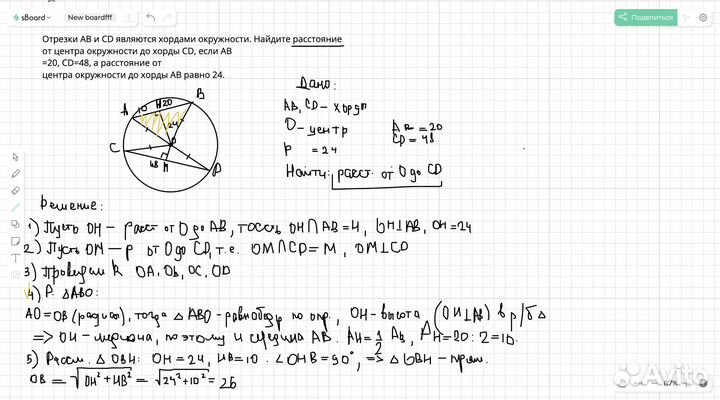 sBoard
New boardfff
Поделиться
Отрезки AB и CD являются хордами окружности. Найдите расстояние
от центра окружности до хорды CD, если AB
=20, CD=48, а расстояние от
центра окружности до хорды AB равно 24.
Дано:
AB, CD – хорды
O – центр
AB = 20
CD = 48
P = 24
Найти: расст. от O до CD
A 10 H 20 B
24
O
C 48 M D
Решение:
1) Пусть OH – расст от O до AB, то есть OH∩AB=H, OH⊥AB, OH=24
2) Пусть OM – р от O до CD, т.е. OM∩CD=M, OM⊥CD
3) Проведем R OA, OB, OC, OD
4) Р. △ABO:
AO=OB (радиусы), тогда △ABO – равнобедр по опр, OH – высота (OH⊥AB) в р/б △
=> OH – медиана, поэтому H середина AB. AH=1/2 AB, AH=20:2=10.
5) Рассм. △OBH: OH=24, HB=10. ∠OHB=90°, => △OBH – прям.
OB = √OH²+HB² = √24²+10² = 26
67%
Avito